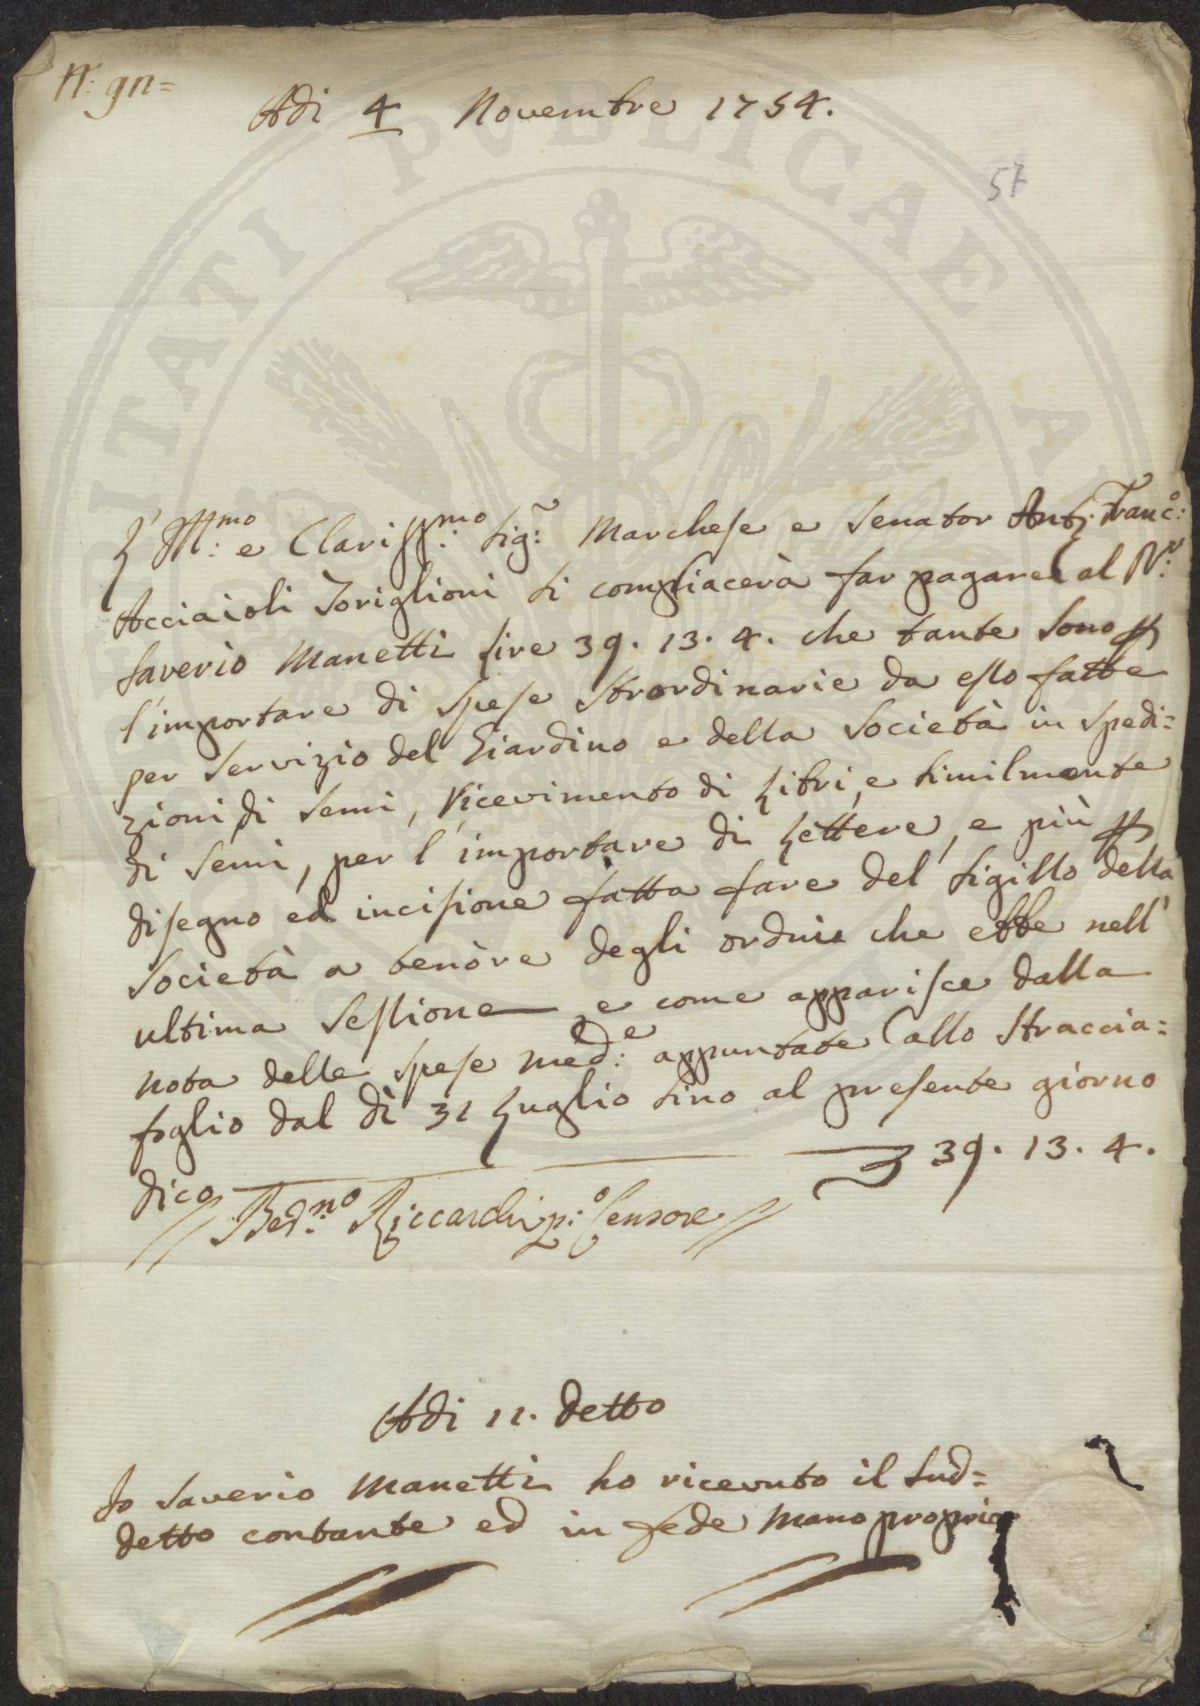 N.
Adi 4 Novembre 1754.
57
L'Ill.mo e Clariss.mo Sig.r Marchese e Senator Ant. Franc.o
Acciaioli Toriglioni si compiacerà far pagare al D.r
Saverio Manetti lire 39. 13. 4. che tante sono
l'importare di spese straordinarie da esso fatte
per servizio del Giardino e della Società in spedi=
zioni di semi, ricevimento di Libri, e similmente
di semi, per l'importare di Lettere, e più
disegno ed incisione fatta fare del sigillo della
Società a tenore degli ordini che ebbe nell'
ultima Sessione e come apparisce dalla
nota delle spese med.e appuntate allo straccia=
foglio dal dì 31 Luglio sino al presente giorno
dico 39. 13. 4.
Bed.no Riccardi p.o Censore
Adi 11. detto
Io Saverio Manetti ho ricevuto il sud=
detto contante ed in fede mano propria
PUBLICAE